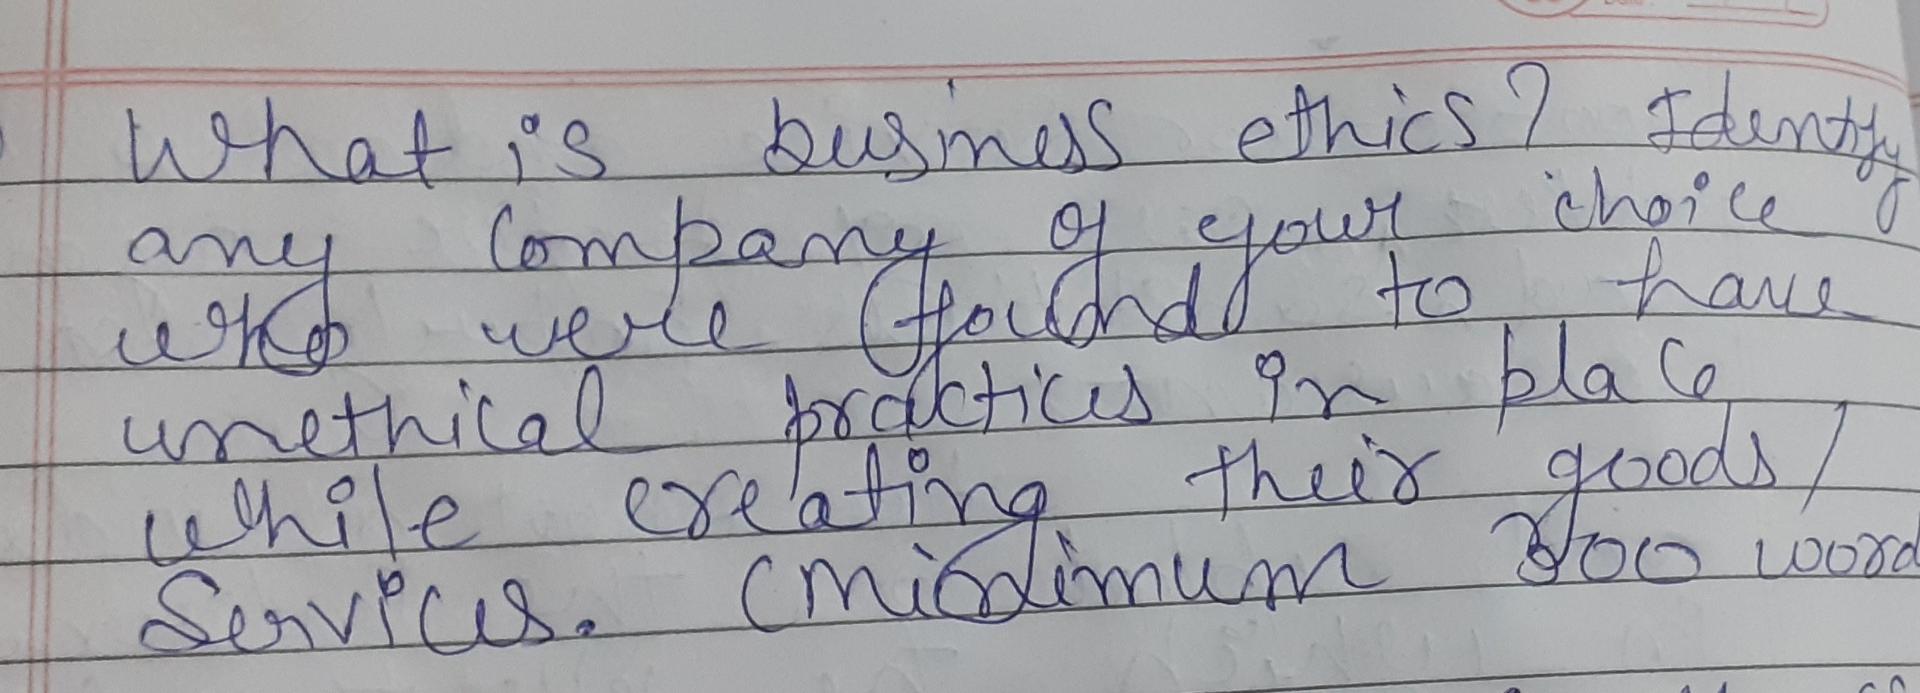 What is business ethics? Identify
any company of your choice
who were found to have
unethical practices in place
while creating their goods/
Services. (minimum 300 word